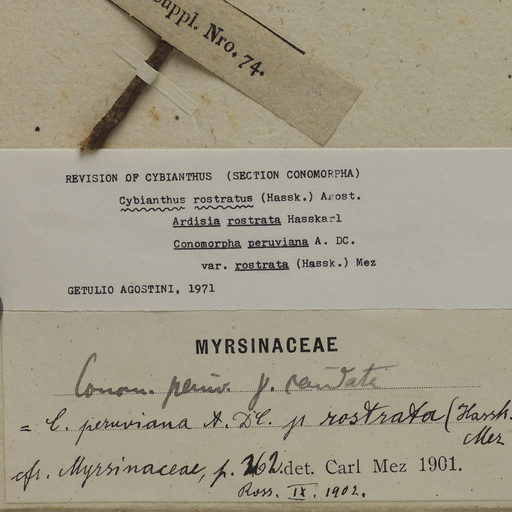 Suppl. Nro. 74.
REVISION OF CYBIANTHUS (SECTION CONOMORPHA)
Cybianthus rostratus (Hassk.) Agost.
Ardisia rostrata Hasskarl
Conomorpha peruviana A. DC.
var. rostrata (Hassk.) Mez
GETULIO AGOSTINI, 1971
MYRSINACEAE
Conom. peruv. γ. caudata
= C. peruviana A. DC. γ rostrata (Hassk.
Mez
cfr. Myrsinaceae, p. 262. det. Carl Mez 1901.
Ross. IX. 1902.